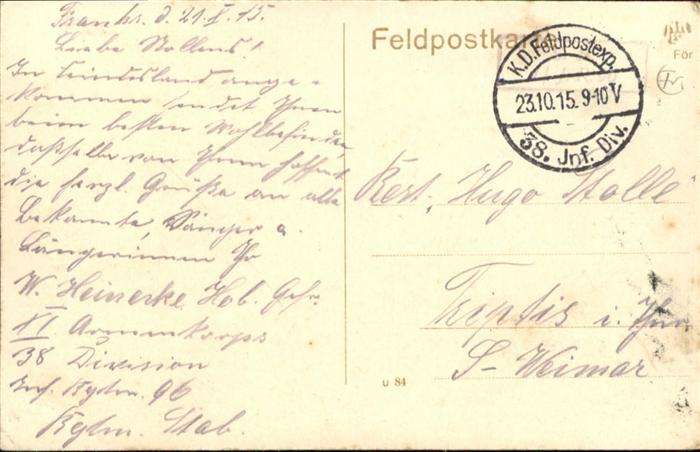 Frankr. d. 21.X.15.
Liebe Stollens!
In Feindesland ange-
kommen sendet Ihnen
beim besten Wohlbefinden,
dasselbe von Ihnen hoffend
die herzl. Grüße an alle
Bekannte, Sänger u.
Sängerinnen Ihr
W. Heinecke Hob. Gefr.
XI Armeekorps
38 Division
Inf. Rgtm. 96
Rgtm. Stab.
Feldpostkarte
K.D. Feldpostexp.
23.10.15. 9-10 V
38. Inf. Div.
Rest. Hugo Stolle
Triptis i. Thür
S-Weimar
u 84